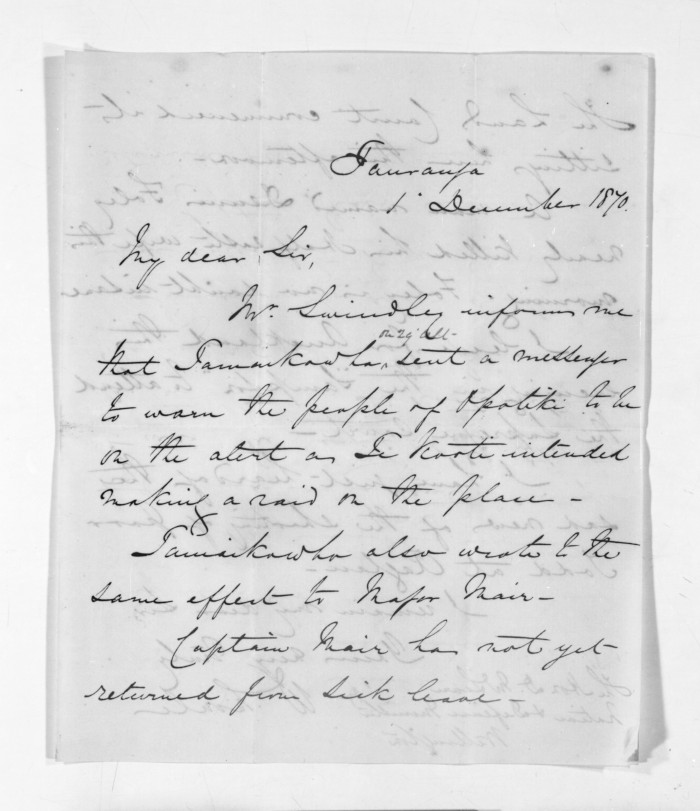 Tauranga
1st December 1870.
My dear Sir,
Mr. Swindley informs me
on 29th ult-
that Tamaikowha, sent a messenger
to warn the people of Opotiki to be
on the alert as Te Kooti intended
making a raid on the place -
Tamaikowha also wrote to the
same effect to Major Mair -
Captain Mair has not yet
returned from sick leave -